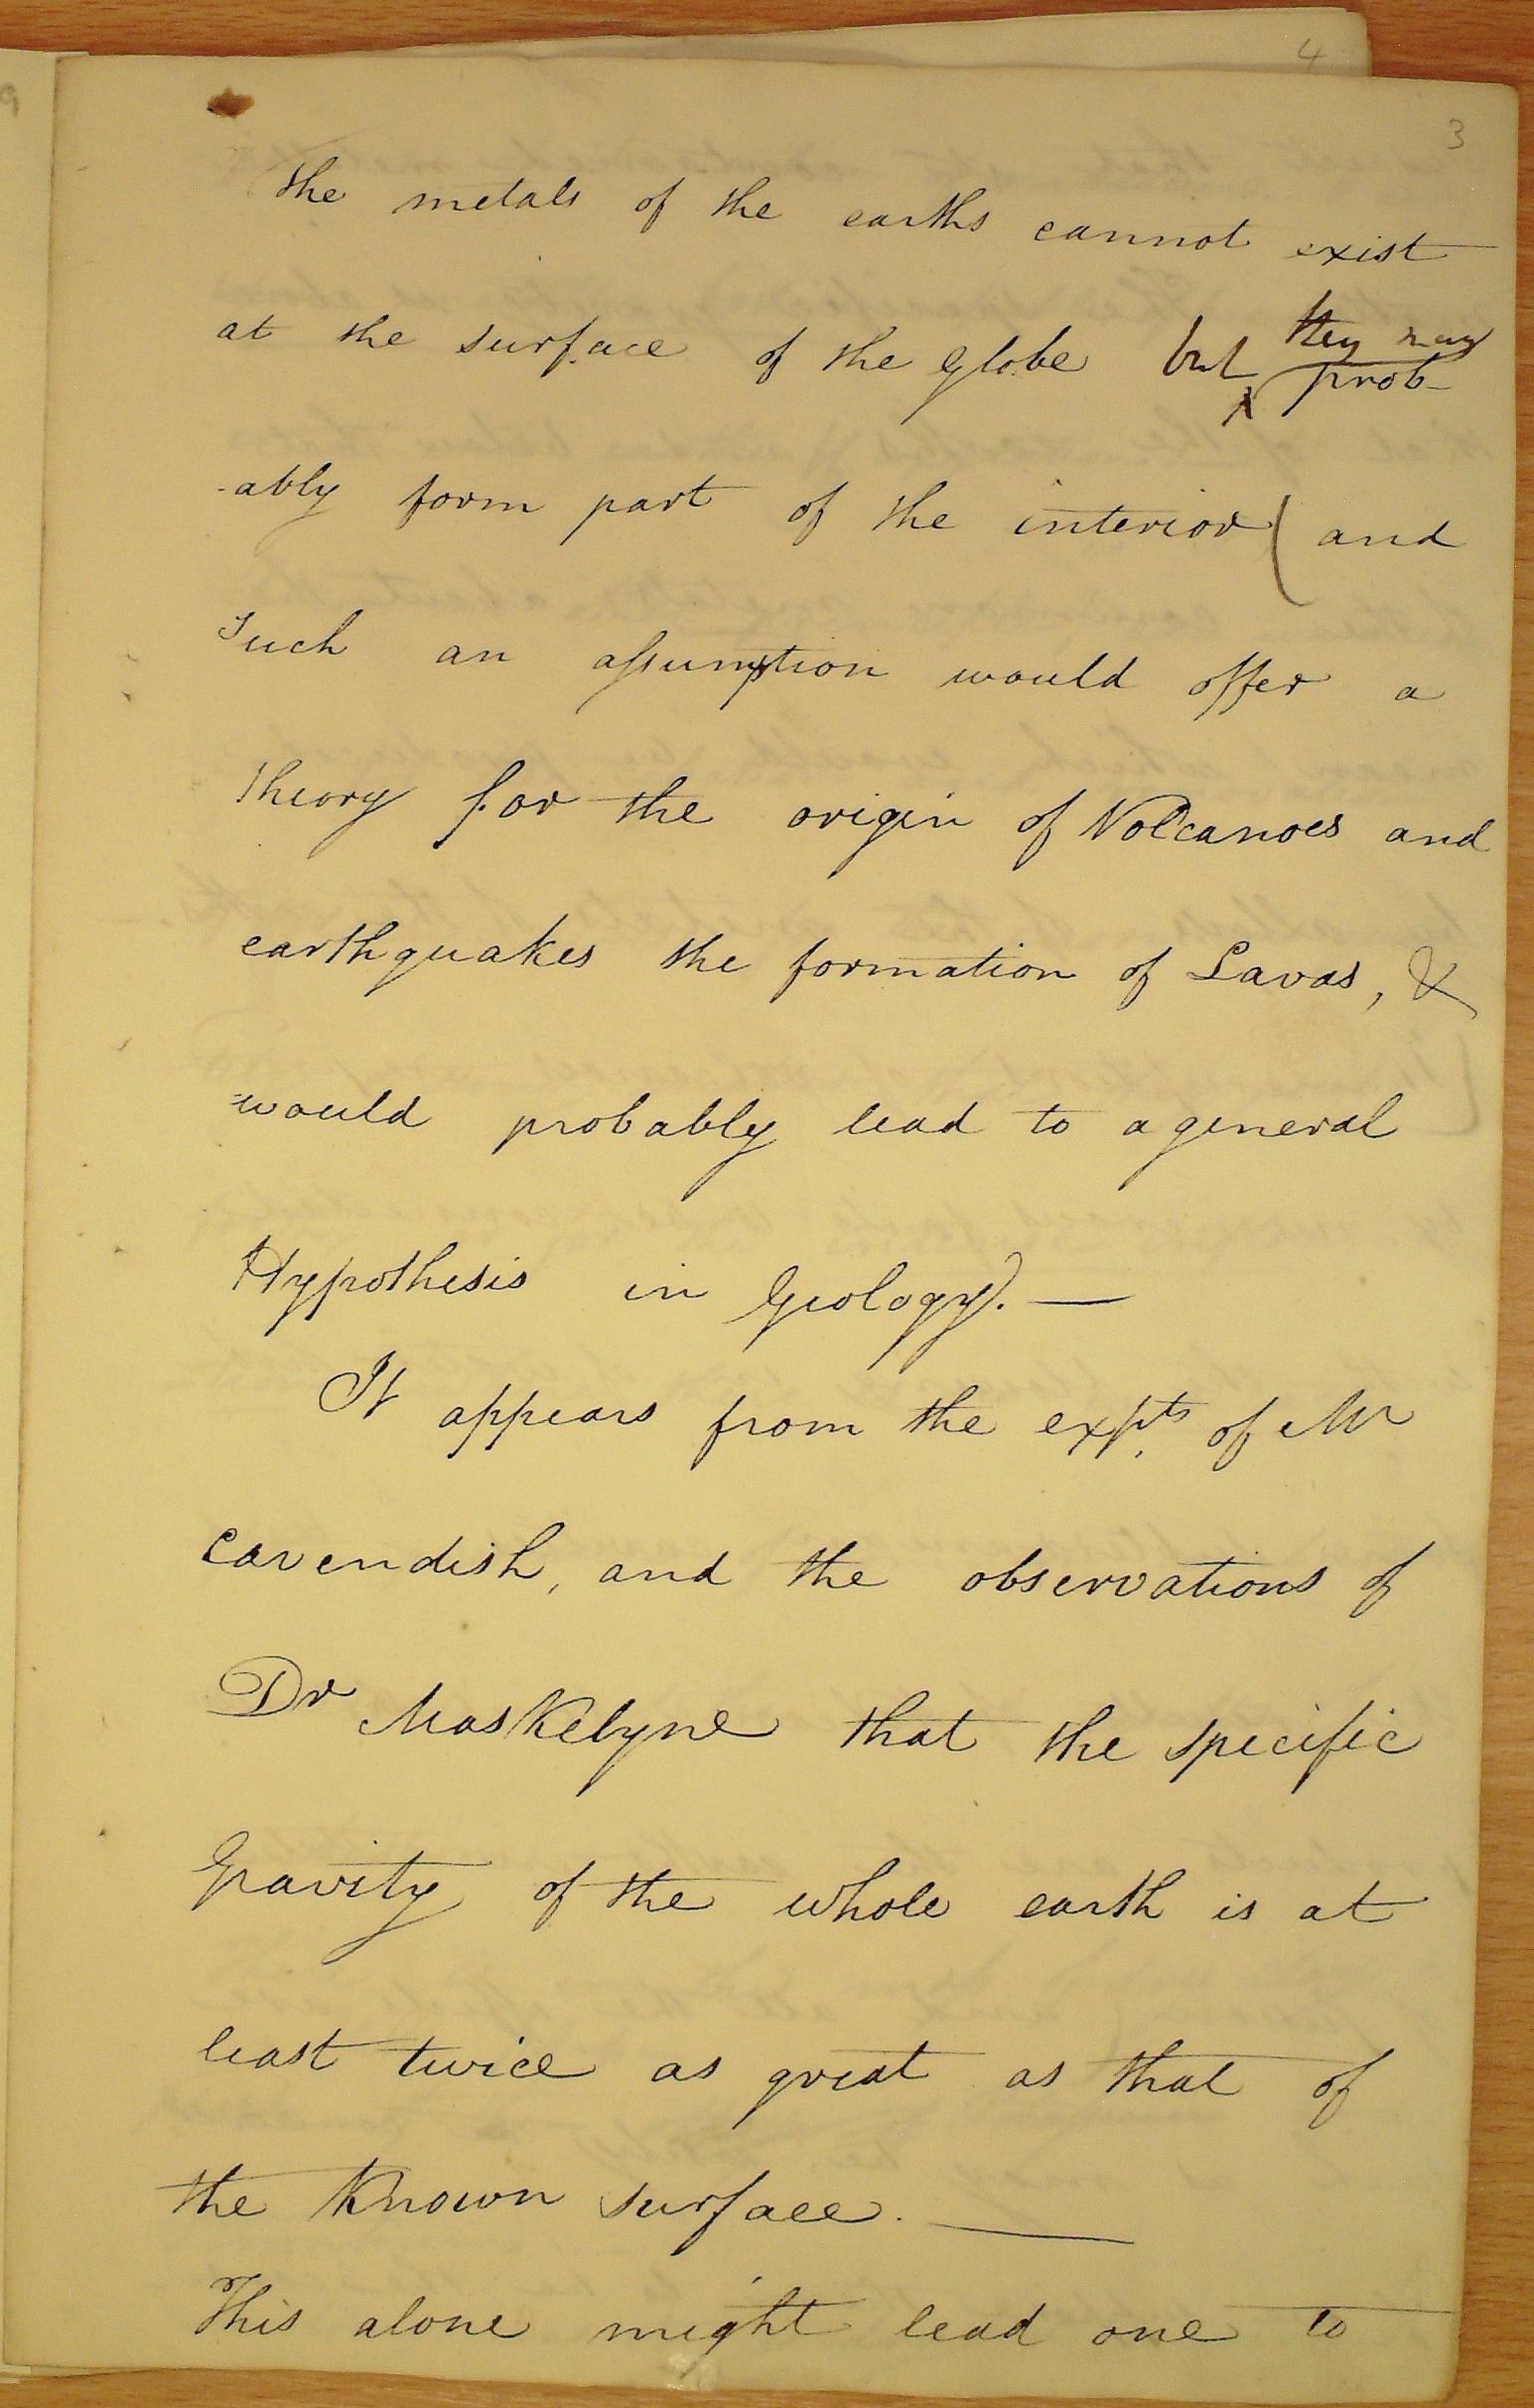 4
3
The metals of the earths cannot exist
at the surface of the Globe but they may prob-
-ably form part of the interior (and
such an aſsumption would offer a
Theory for the origin of Volcanoes and
earthquakes the formation of Lavas, &
would probably lead to a general
Hypothesis in Geology). —
It appears from the expts. of Mr
Cavendish, and the observations of
Dr Maskelyne that the specific
Gravity of the whole earth is at
least twice as great as that of
the known surface. —
This alone might lead one to